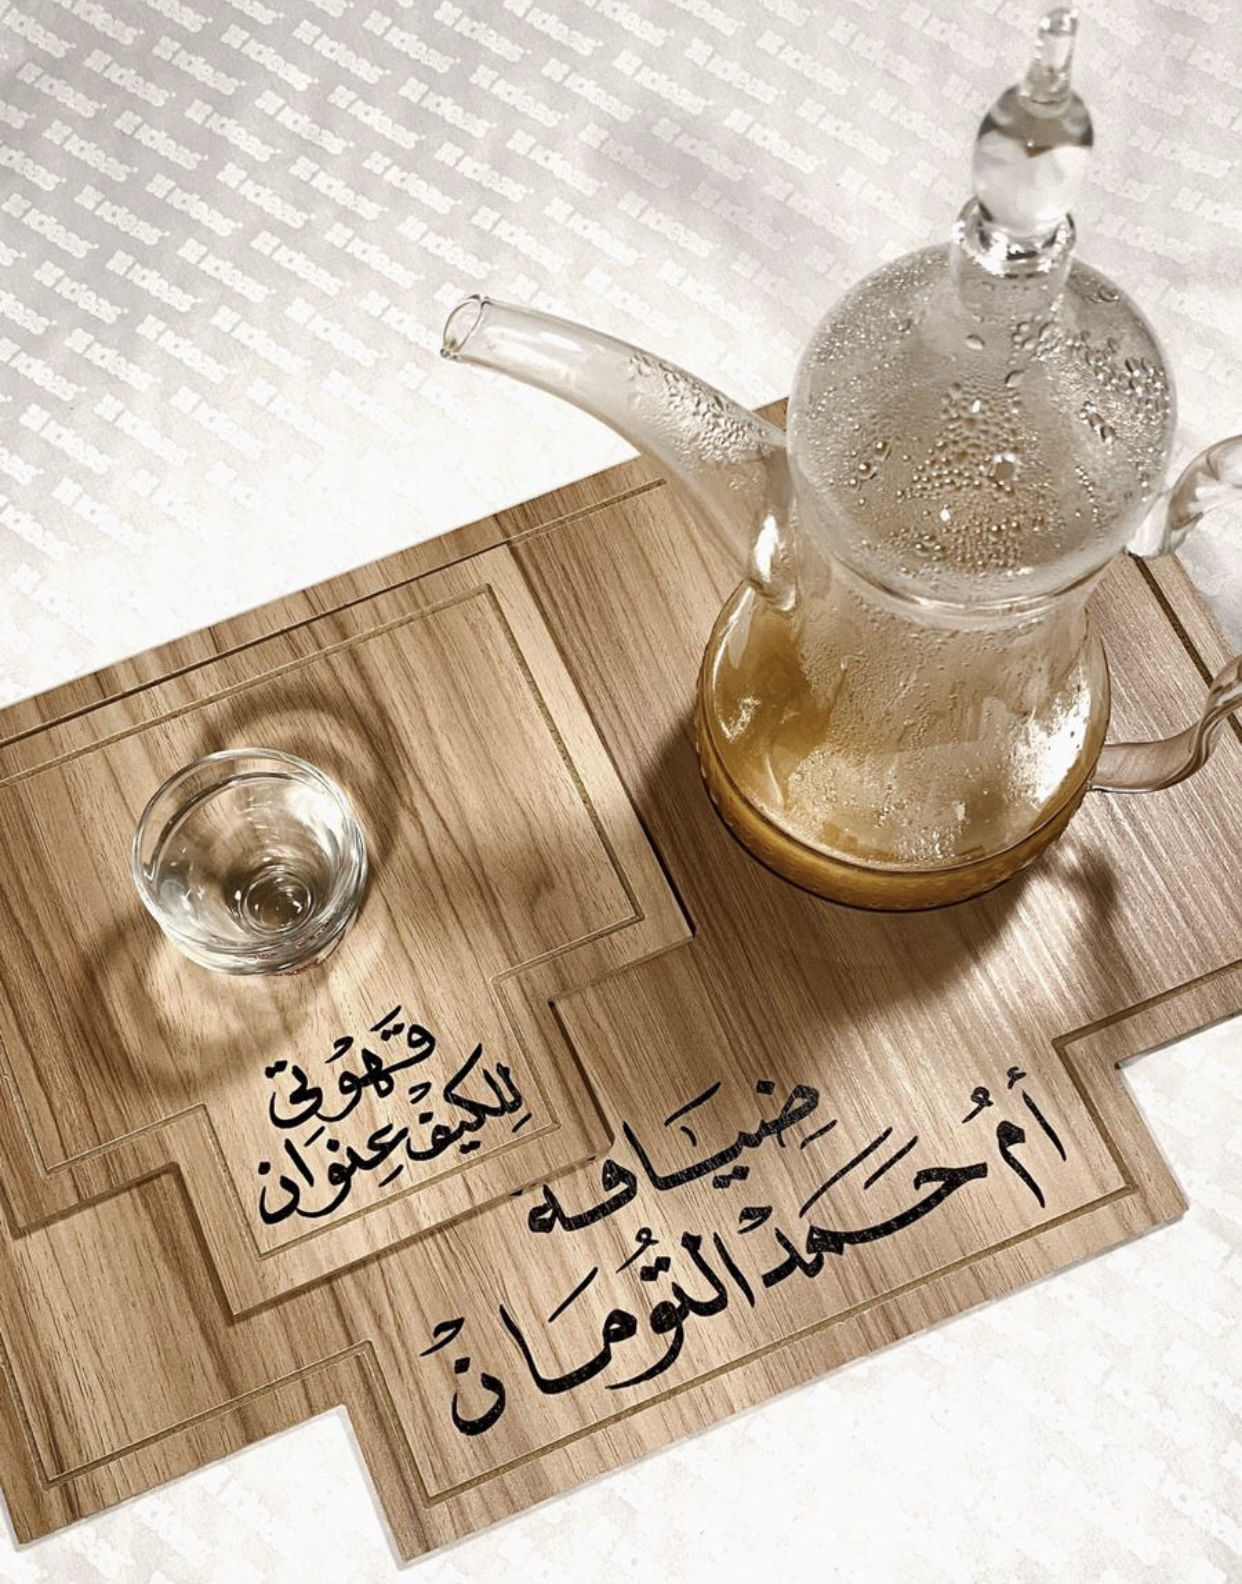 قَهْوتي
لِلكيفْ عِنوَان
ضِيَافة
أمُ حَمَدْ التُومَانْ
ideas